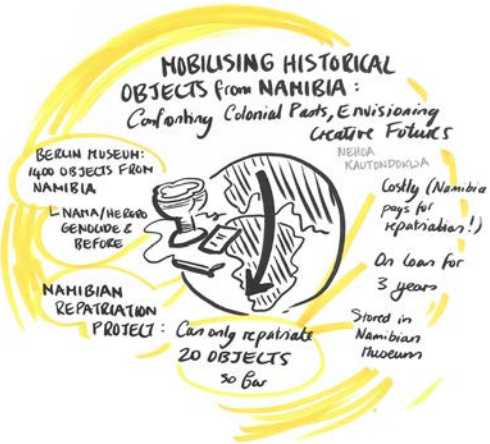 MOBILISING HISTORICAL
OBJECTS from NAMIBIA :
Confronting Colonial Pasts, Envisioning
Creative Futures
NEHOA
KAUTONDOKWA
BERLIN MUSEUM:
1400 OBJECTS FROM
NAMIBIA
L NAMA/HERERO
GENOCIDE &
BEFORE
NAMIBIAN
REPATRIATION
PROJECT : Can only repatriate
20 OBJECTS
so far
Costly (Namibia
pays for
repatriation!)
On loan for
3 years
Stored in
Namibian
Museum